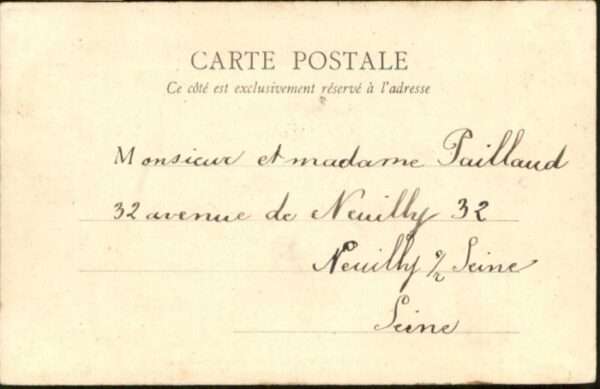 CARTE POSTALE
Ce côté est exclusivement réservé à l'adresse
Monsieur et madame Paillaud
32 avenue de Neuilly 32
Neuilly s/ Seine
Seine